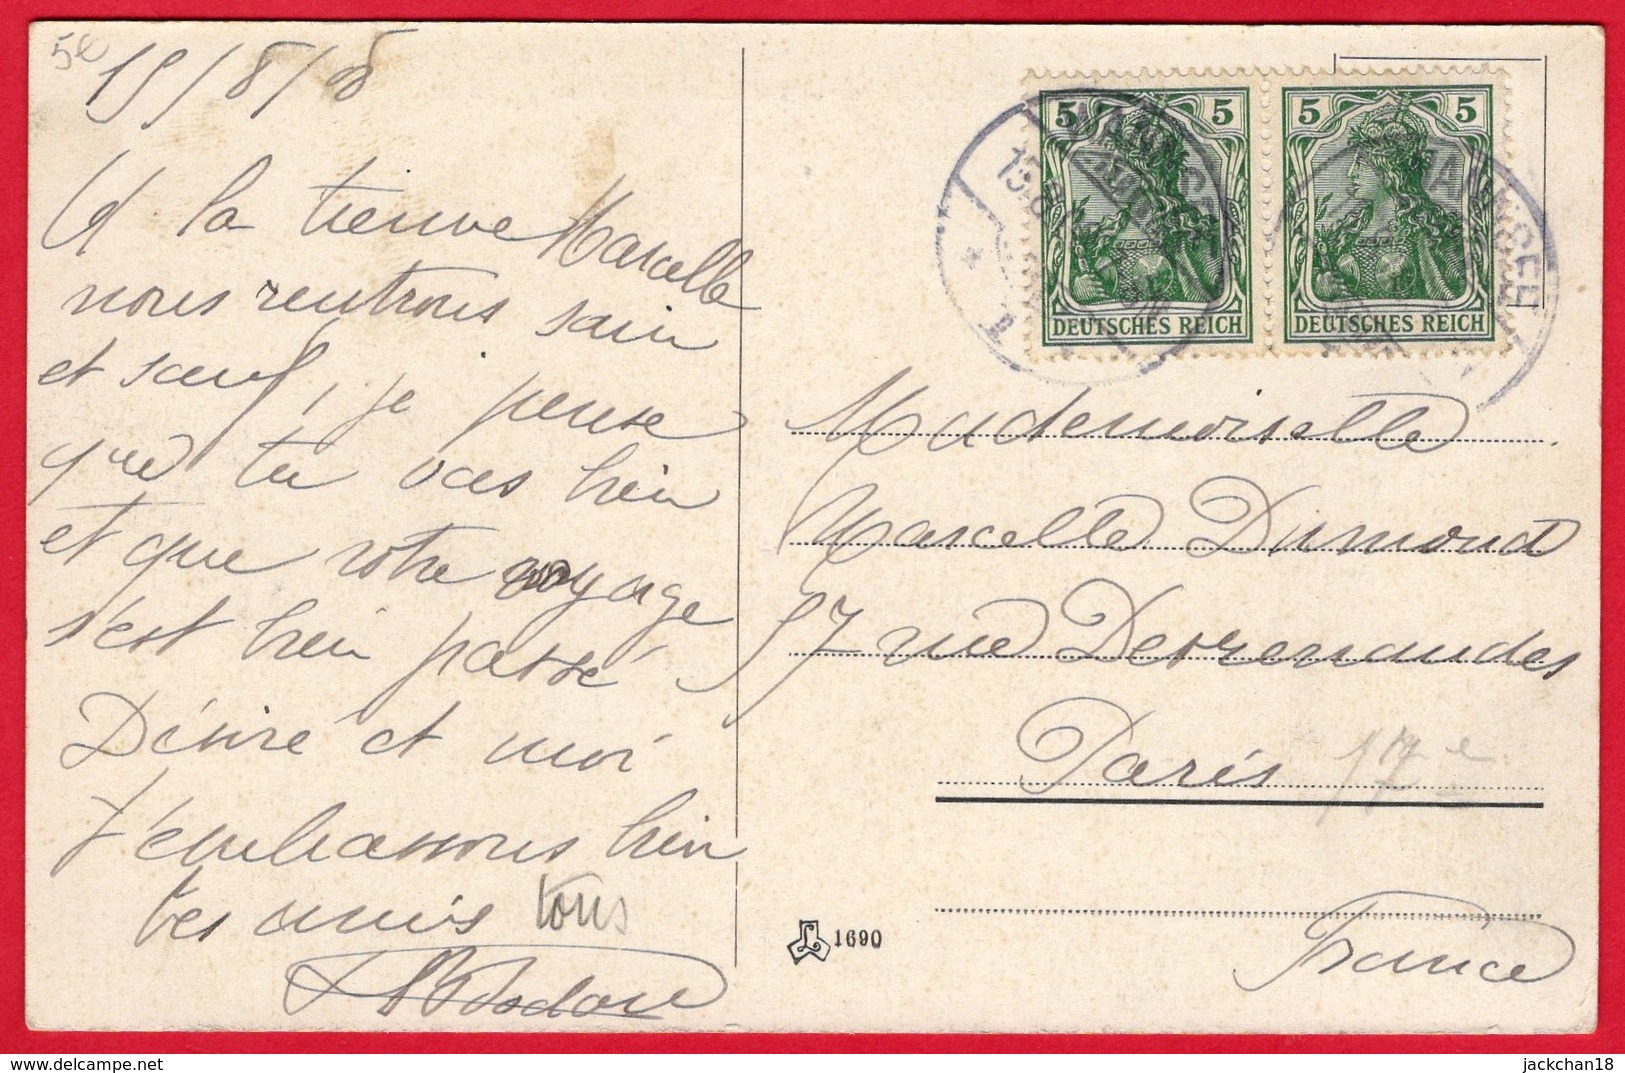 5€
15/8/08
A la tienne Marcelle
nous rentrons sain
et sauf, je pense
que tu vas bien
et que votre voyage
s'est bien passé
Désiré et moi
t'embrassons bien
tes amis tous
5 5 5 5
DEUTSCHES REICH DEUTSCHES REICH
Mademoiselle
Marcelle Dumont
57 rue Desrenaudes
Paris 17e
France
1690
www.delcampe.net
jackchan18